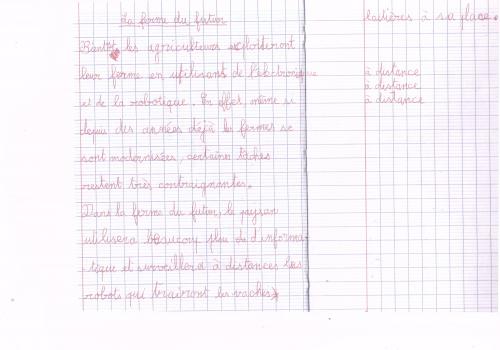 La ferme du futur
Bientôt les agriculteurs exploiteront
leur ferme en utilisant de l'électronique
et de la robotique. En effet même si
depuis des années déjà les fermes se
sont modernisées, certaines tâches
restent très contraignantes.
Dans la ferme du futur, le paysan
utilisera beaucoup plus d'informa-
-tique et surveillera à distances les
robots qui trairont les vaches
laitières à sa place.
à distance
à distance
à distance